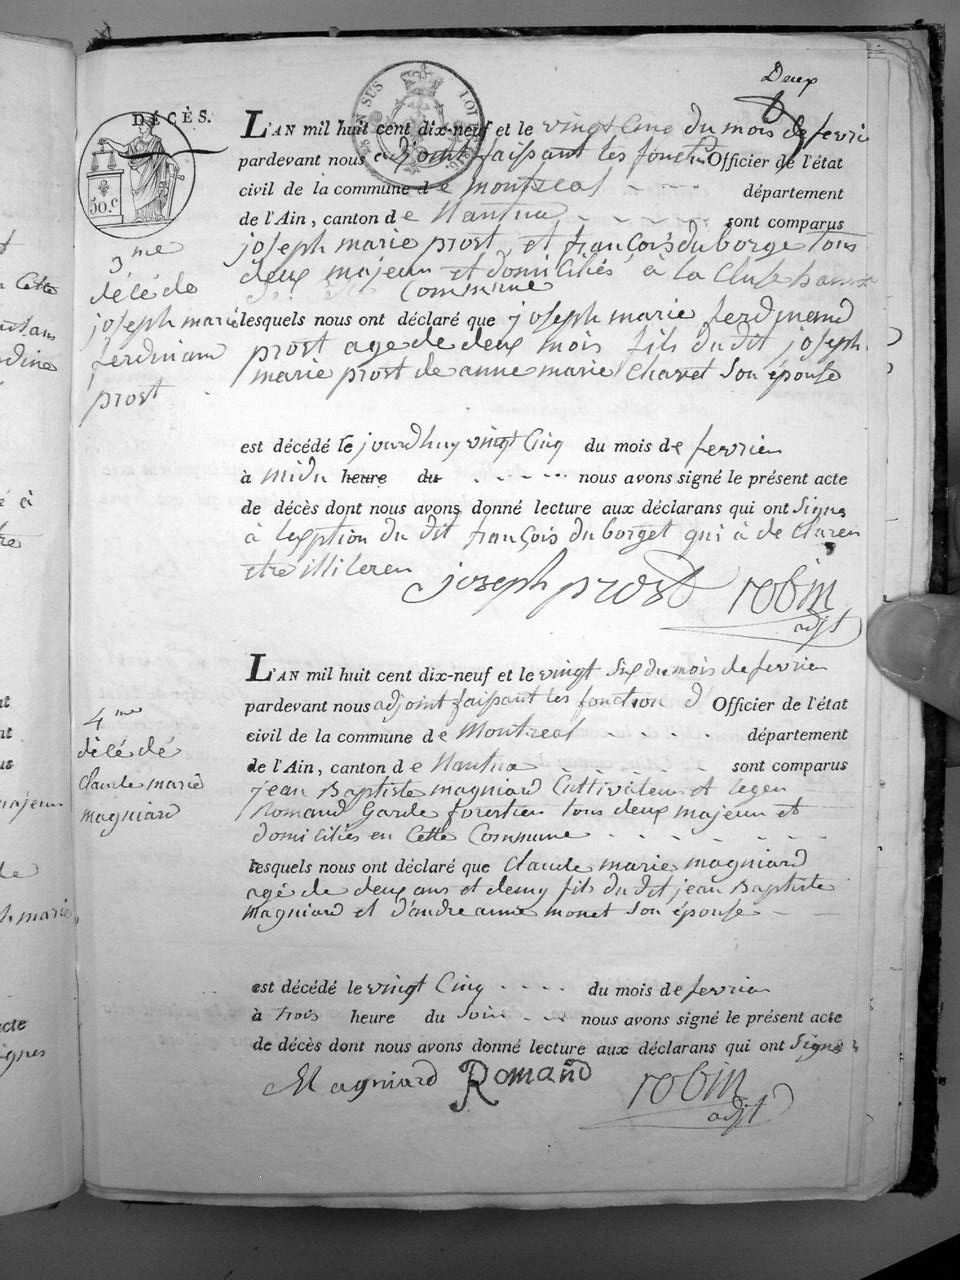 Deux
DÉCÈS.
50.c
L'AN mil huit cent dix-neuf et le vingt Cinq du mois de fevrie
pardevant nous adjoint faissant les fonct Officier de l'état
civil de la commune de montreal département
de l'Ain, canton de Nantua sont comparus
joseph marie prost et francois du borge tous
deux majeur et domiciliés à la Cluse
Commune
lesquels nous ont déclaré que joseph marie ferdinand
prost age de deux mois fils du dit joseph
marie prost de anne marie Chavet son épouse
est décédé le jourdhuy vingt Cinq du mois de fevrier
à midi heure du nous avons signé le présent acte
de décès dont nous avons donné lecture aux déclarans qui ont Signe
à lexption du dit françois du borget qui à de Claren
etre illiteren
joseph prost robin
adjt
3me
décé de
joseph marie
ferdinand
prost
L'AN mil huit cent dix-neuf et le vingt Six du mois de fevrier
pardevant nous adjoint faissant les fonction d Officier de l'état
civil de la commune de Montreal département
de l'Ain, canton de Nantua sont comparus
jean Baptiste magniard Cultivateur et
Romand Garde forestier tous deux majeur et
domiciliés en Cette Commune
lesquels nous ont déclaré que Claude marie magniard
agé de deux ans et demy fils du dit jean Baptiste
Magniard et d'andre anne monet son épouse
est décédé le vingt Cinq du mois de fevrier
à trois heure du soir nous avons signé le présent acte
de décès dont nous avons donné lecture aux déclarans qui ont Signe
Magniard Romand robin
adjt
4me
décé dé
Claude marie
magniard